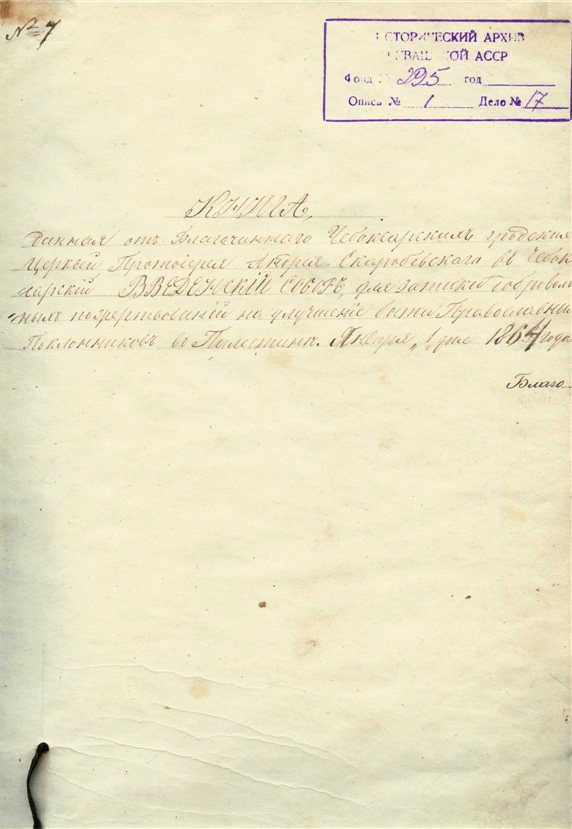 № 7
ИСТОРИЧЕСКИЙ АРХИВ
ЧУВАШСКОЙ АССР
Фонд № 295 год
Опись № 1 Дело № 17
КНИГА,
данная отъ Благочиннаго Чебоксарскихъ градскихъ
церквей Протоіерея Андрея Скаробевскаго въ Чебок-
сарскій ВВЕДЕНСКІЙ СОБОРЪ, для записки доброволь-
ныхъ пожертвованій на улучшеніе быта Православныхъ
Поклонниковъ въ Палестинѣ. Января 1 дня 1864 года
Благо-